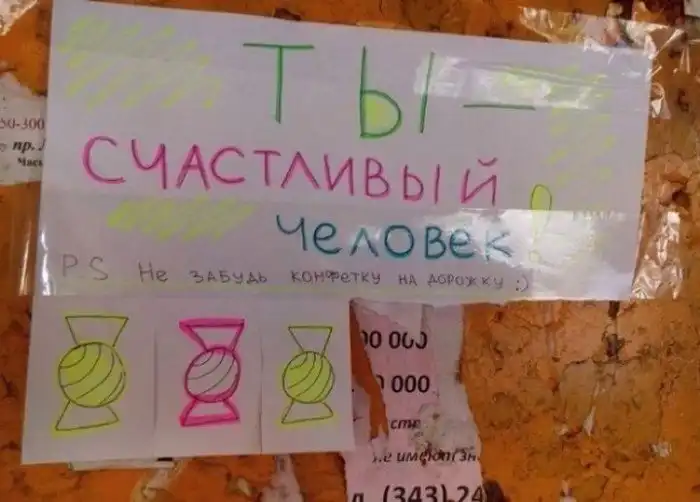 ТЫ —
СЧАСТЛИВЫЙ
ЧЕЛОВЕК!
PS НЕ ЗАБУДЬ КОНФЕТКУ НА ДОРОЖКУ :)
50-300
пр.
00 000
000
(343) 24